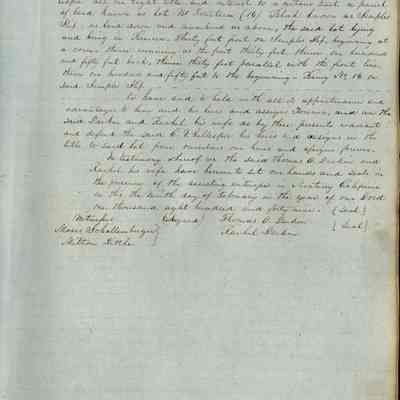 all our right title and interest to a certain lot or parcel
of land known as Lot No Fourteen (14) Block known as Semples
as laid down and marked as above, the said lot lying
and being in thirty feet front on Semples beginning at
a corner thence running at the front thirty feet, thence one hundred
and fifty feet back, thence thirty feet parallel with the front line
thence one hundred and fifty feet to the beginning. Being No 14 on
said Semple
To have and to hold with all & appurtenances and
advantages to him and his heirs and assigns forever, and we the
said Durkin and Rachel his wife do by these presents warrant
and defend the said C V Gillespie his heirs and assigns in the
title to said lot from ourselves our heirs and assigns forever.
In testimony whereof we the said Thomas C. Durkin and
Rachel his wife have hereunto set our hands and seals in
the presence of the assisting witnesses in Monterey California
on this the ninth day of February in the year of our Lord
one thousand eight hundred and forty nine. (Seal)
Witnesses (Signed) Thomas C. Durkin
Moses Schallenberger Rachel Durkin (Seal)
Milton Little